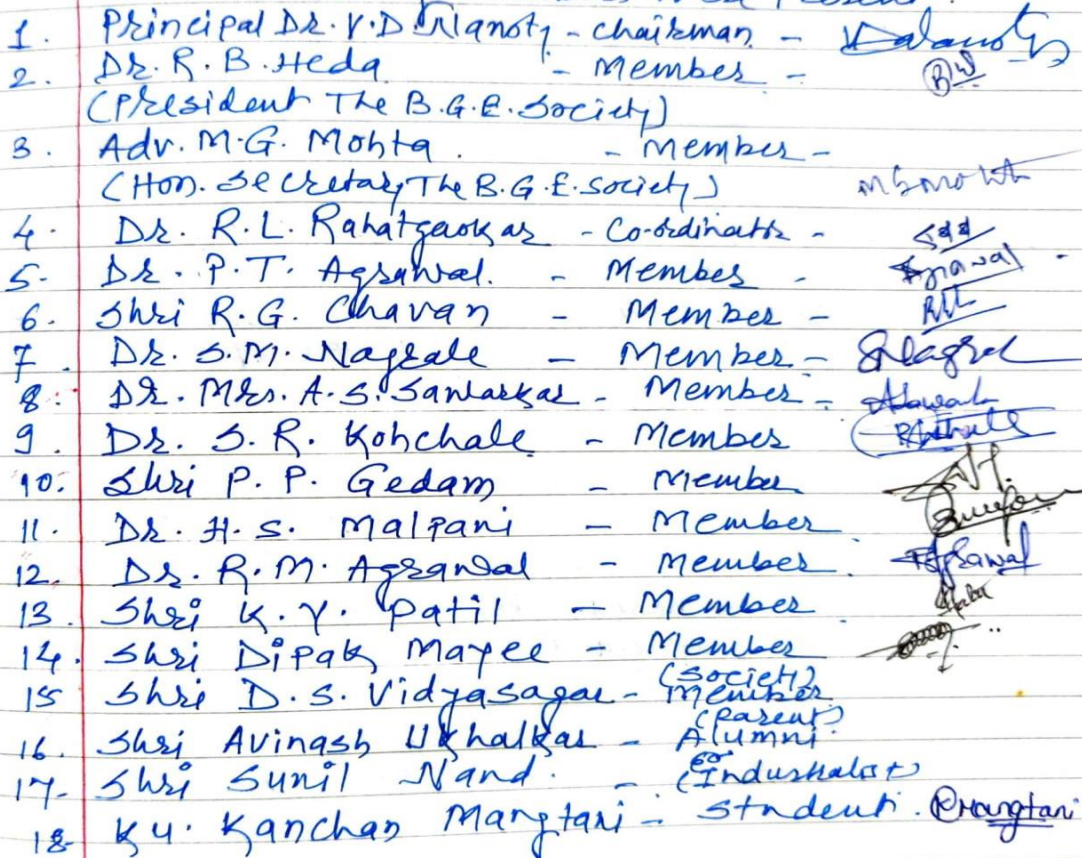 1. Principal Dr. V.D Nanoty - Chairman -
2. Dr. R. B. Heda - Member -
(President The B.G.E. Society)
3. Adv. M.G. Mohta. - Member -
(Hon. Secretary The B.G.E. Society)
4. Dr. R.L. Rahatgaokar - Co-ordinator -
5. Dr. P.T. Agrawal. - Member -
6. Shri R.G. Chavan - Member -
7. Dr. S.M. Nagrale - Member -
8. Dr. Mrs. A.S. Sawarkar - Member -
9. Dr. S.R. Kohchale - Member
10. Shri P.P. Gedam - Member
11. Dr. H.S. Malpani - Member
12. Dr. R.M. Agrawal - Member Agrawal
13. Shri K.Y. Patil - Member
14. Shri Dipak Mayee - Member
(Society)
15 Shri D.S. Vidyasagar - Member
(Parent)
16. Shri Avinash Ukhalkar - Alumni
17. Shri Sunil Nand. - (Industrialist)
18. Ku. Kanchan Mangtani - Student. Mangtani